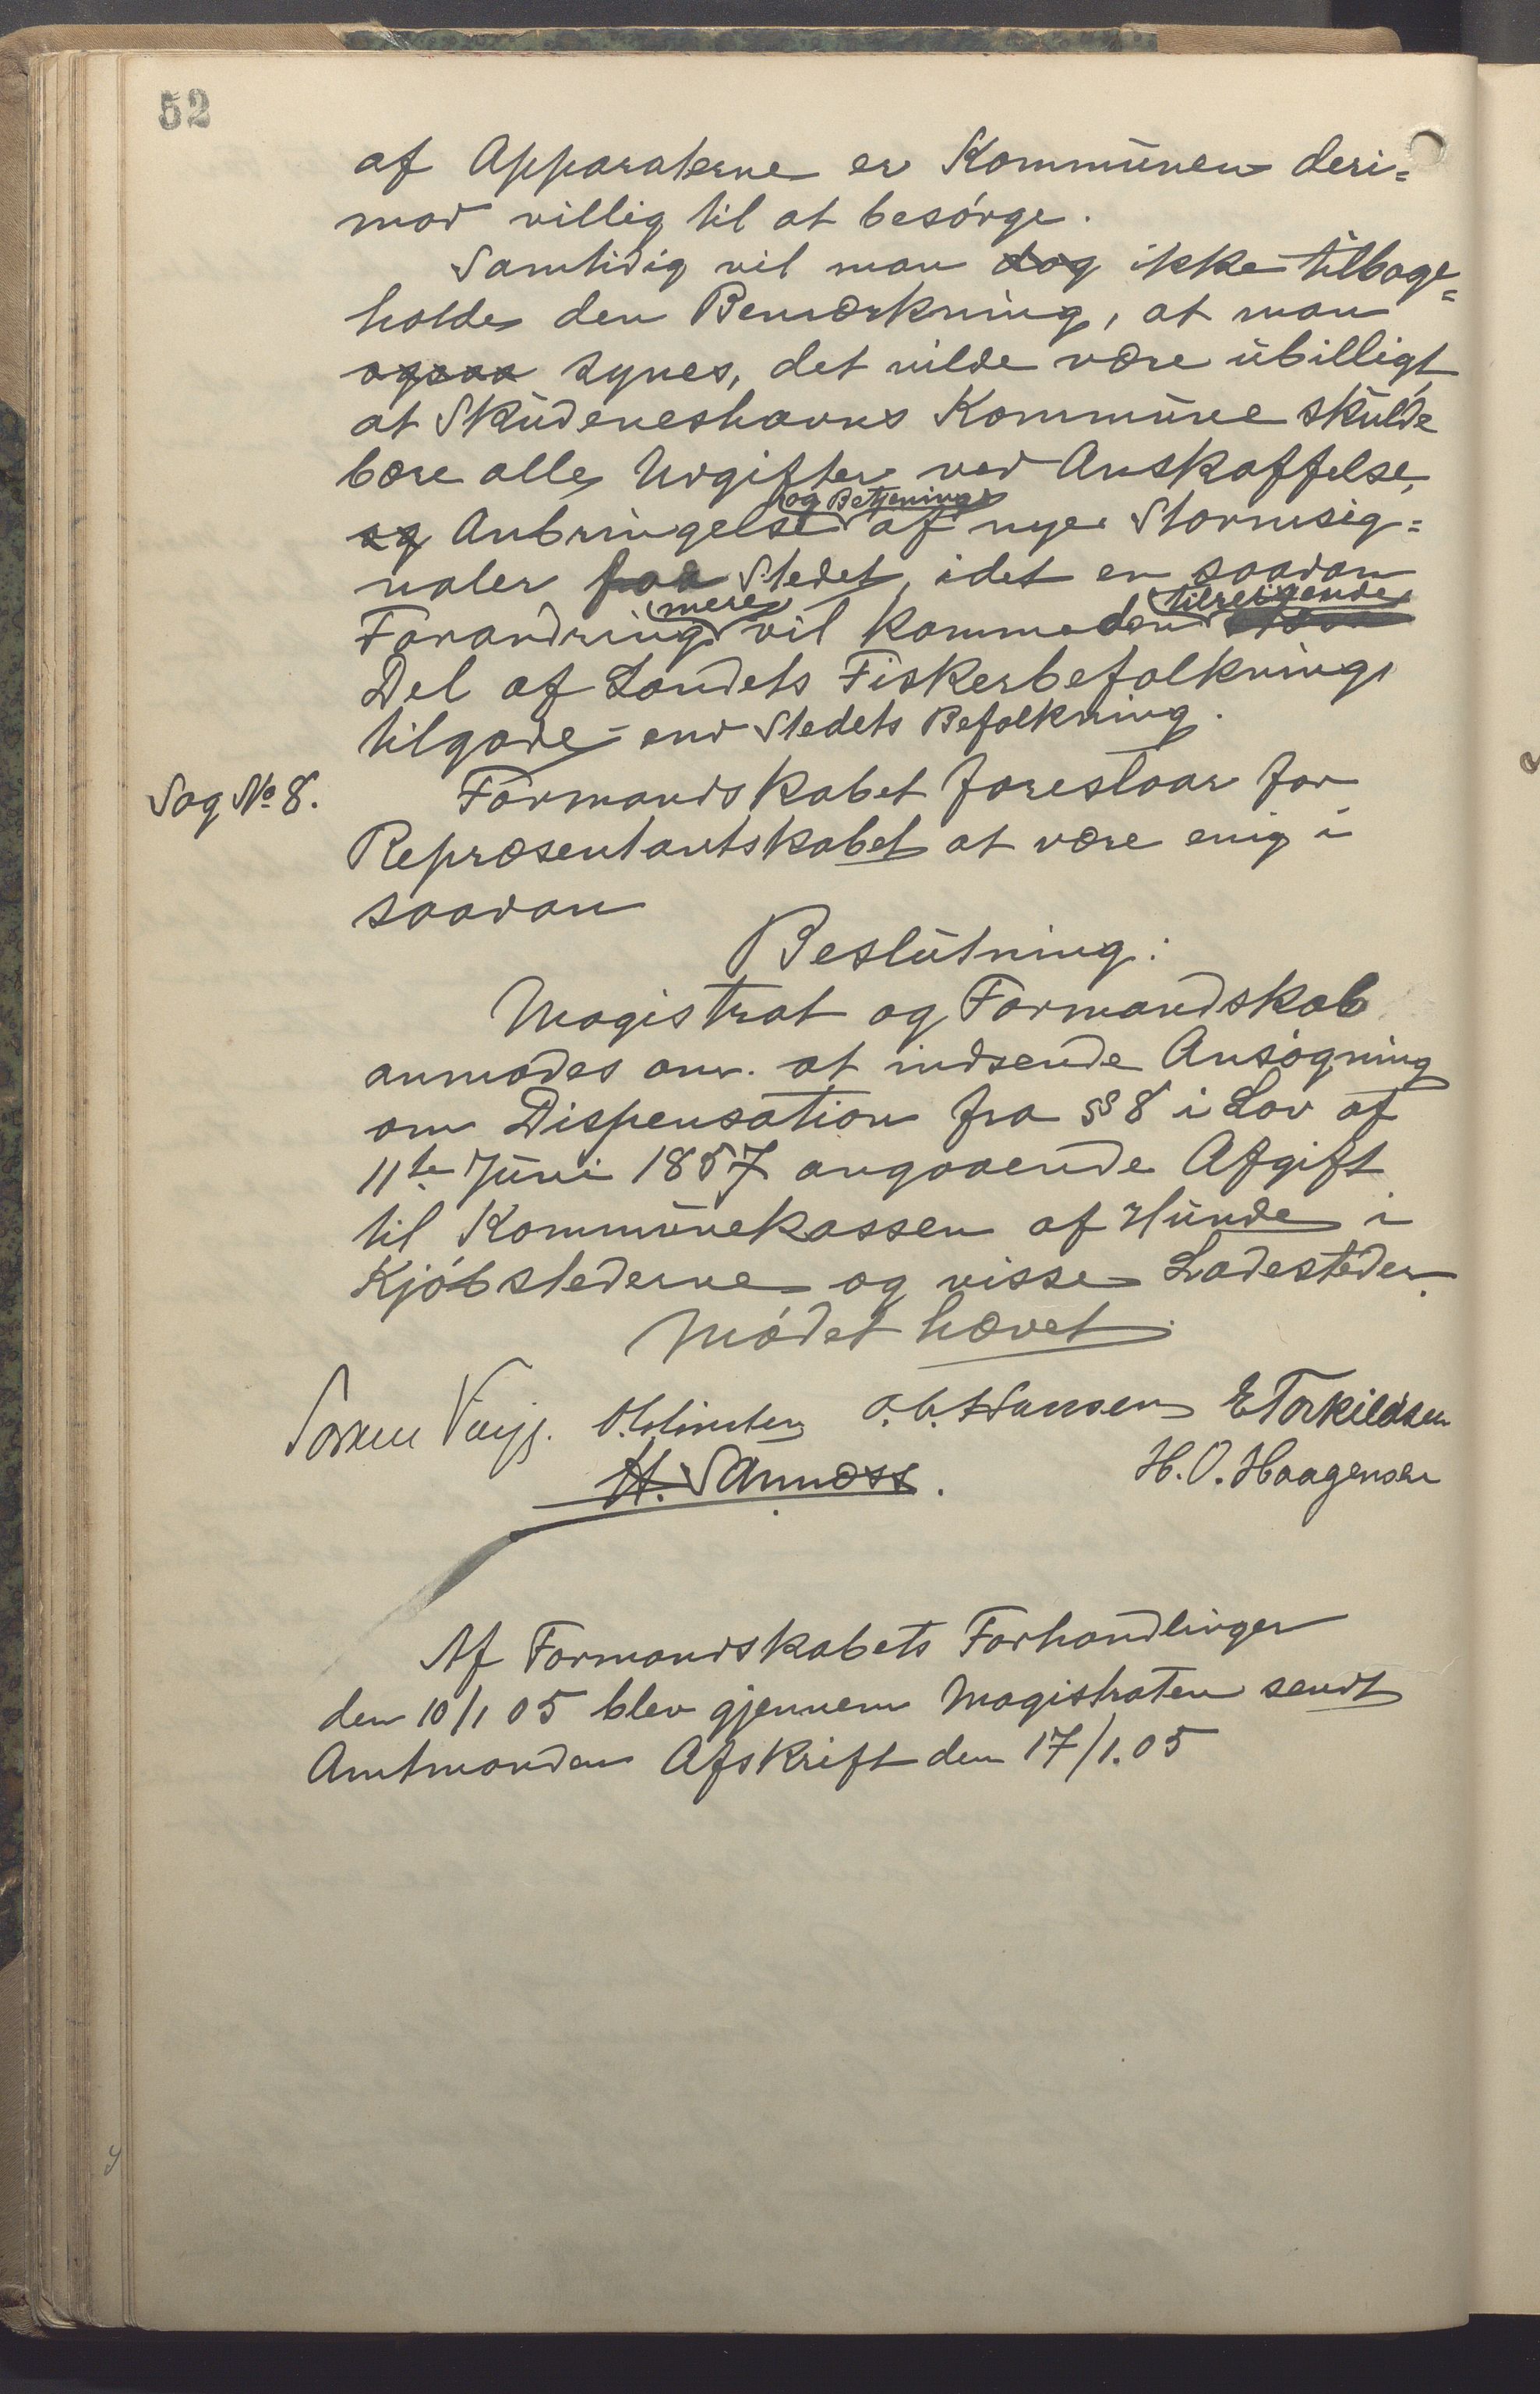 52
af Apparaterne er Kommunen deri=
mod villig til at besórge.
Samtidig vil man dog ikke tilbage=
holde den Bemærkning, at man
ogsaa synes, det vilde være ubilligt
at Skudeneshavns Kommune skulde
bære alle Udgifter ved Anskaffelse,
og Anbringelse og Betjening af nye Stormsig=
naler paa Stedet, idet en saadan
Forandring mere vil komme den tilreisende
Del af Landets Fiskerbefolkning
tilgode end Stedets Befolkning.
Sag No 8.
Formandskabet foreslaar for
Repræsentantskabet at være enig i
saadan
Beslutning:
Magistrat og Formandskab
anmodes om at indsende Ansøgning
om Dispensation fra § 8 i Lov af
11te Juni 1857 angaaende Afgift
til Kommunekassen af Hunde i
Kjóbstederne og visse Ladesteder.
Módet hævet.
O. b. Hansen E Torkildsen
H. Sannæss. H. O. Haagensen
Af Formandskabets Forhandlinger
den 10/1 05 blev gjennem Magistraten sendt
Amtmanden Afskrift den 17/1.05